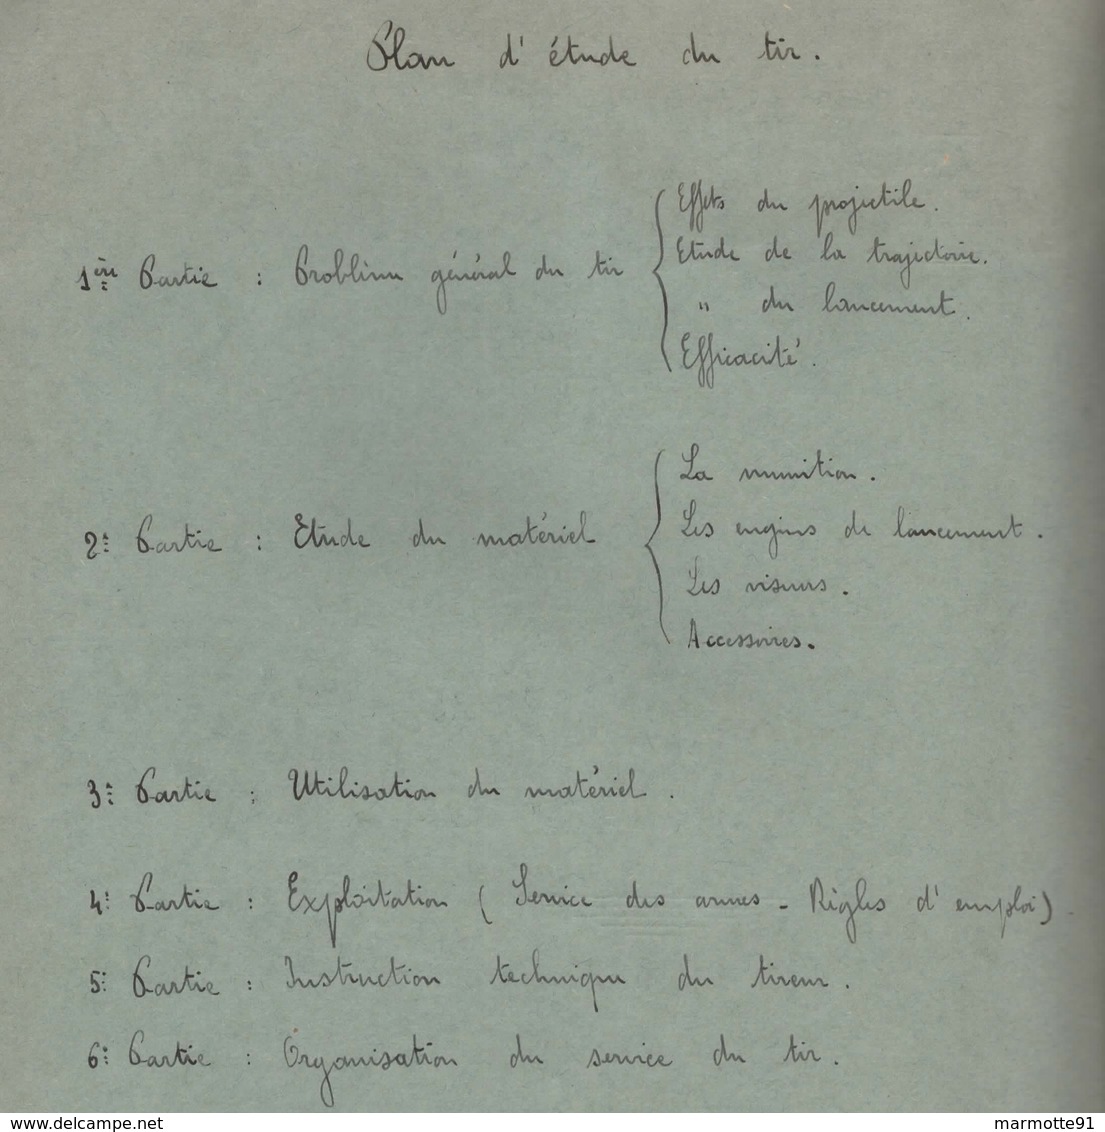 Plan d'étude du tir.
Effets du projectile.
Etude de la trajectoire.
1ère Partie : Problème général du tir
" du lancement.
Efficacité.
La munition.
Les engins de lancement.
2e Partie : Etude du matériel
Les viseurs.
Accessoires.
3e Partie : Utilisation du matériel.
4e Partie : Exploitation (Service des armes - Règles d'emploi)
5e Partie : Instruction technique du tireur.
6e Partie : Organisation du service du tir.
www.delcampe.net
marmotte91